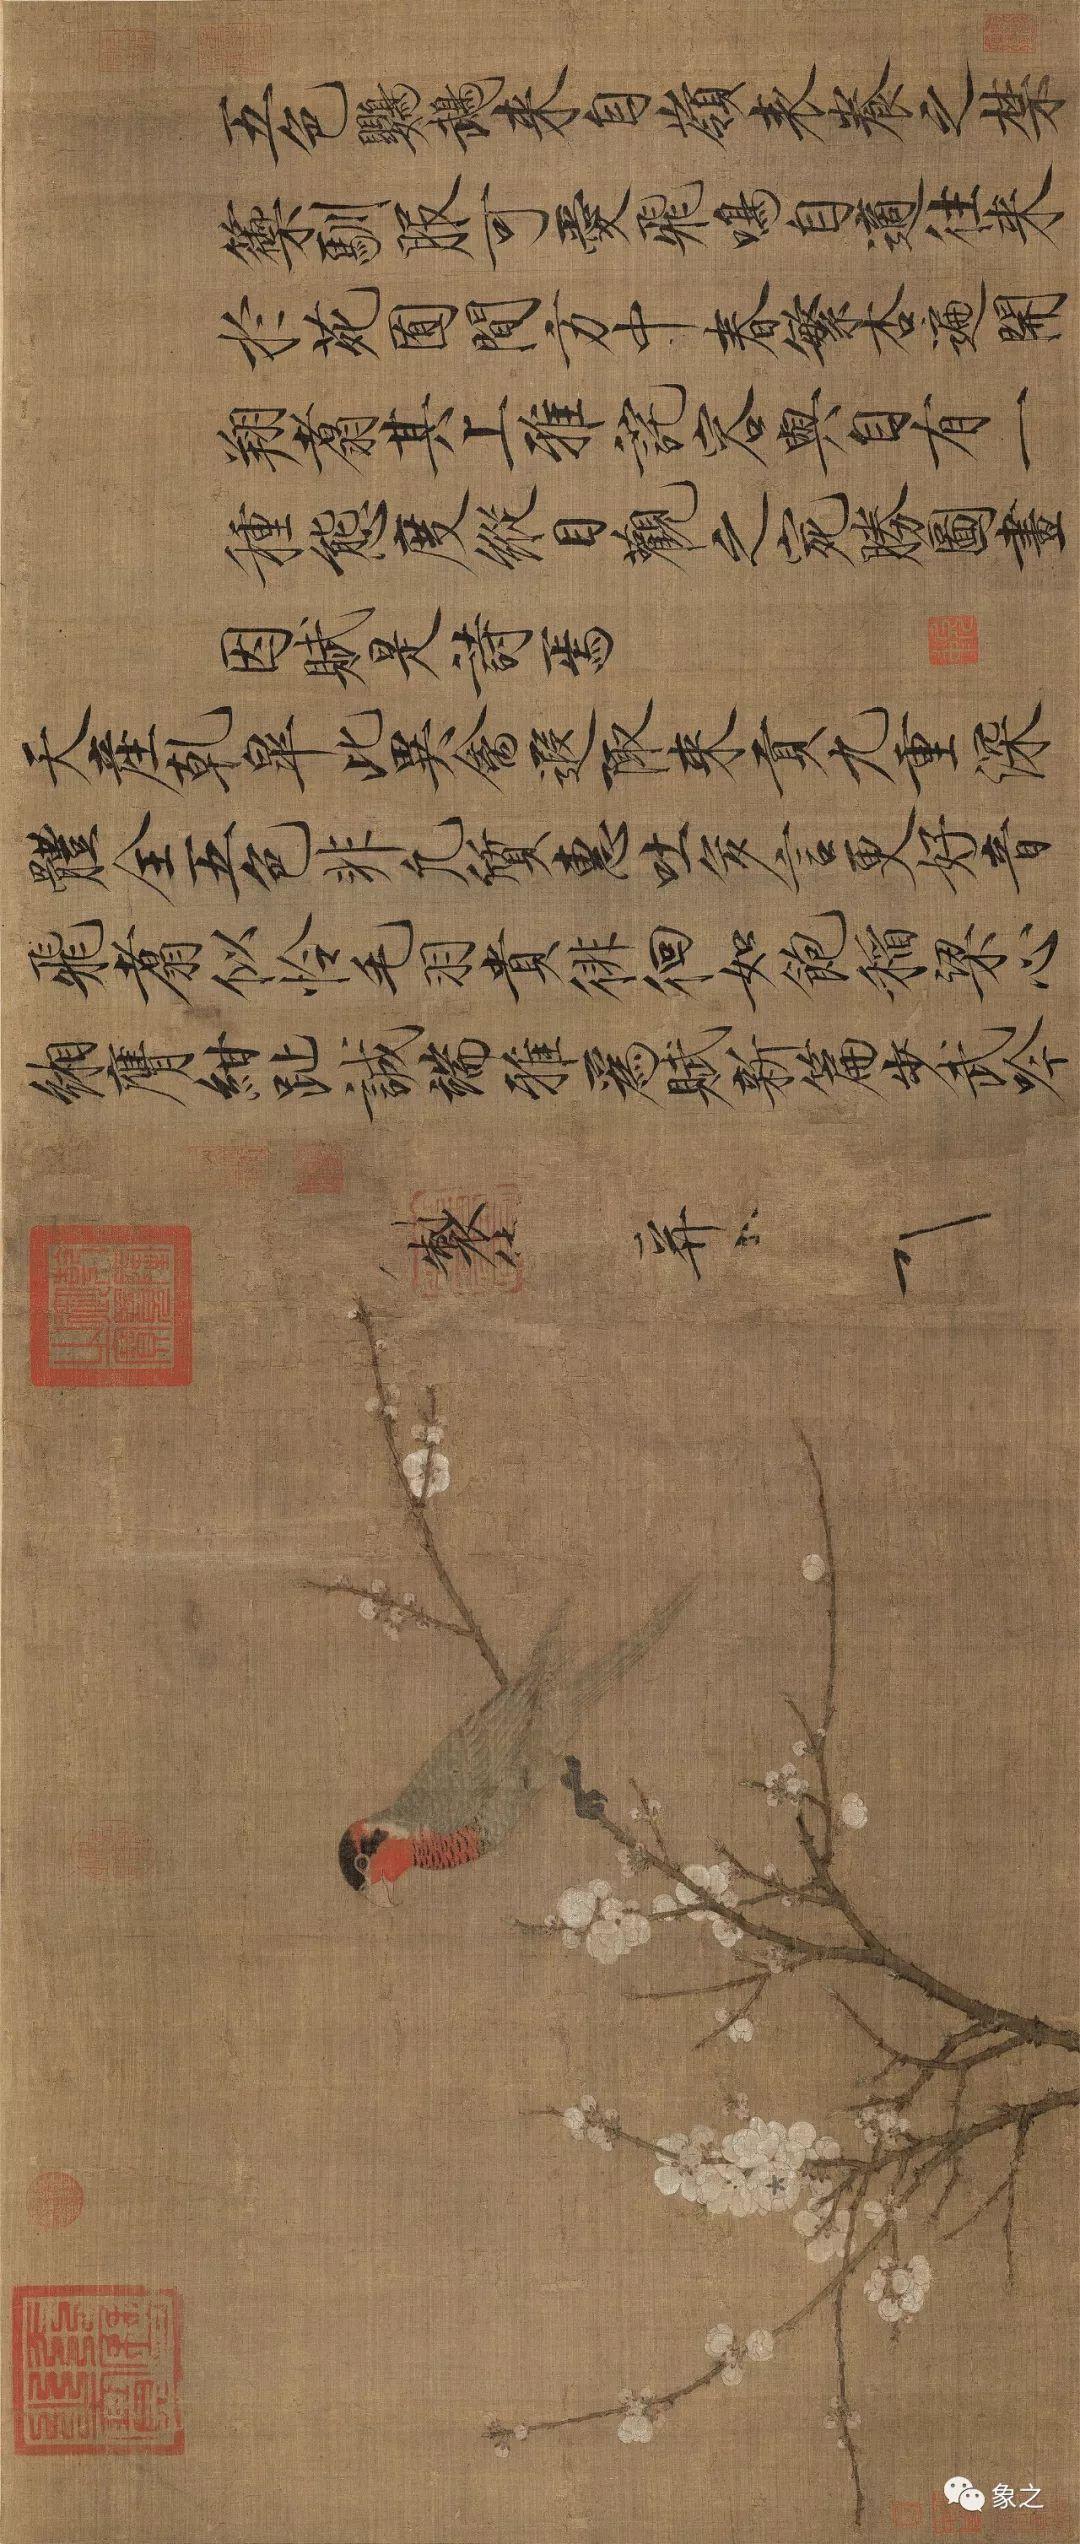 五色鸚鵡來自嶺表養之禁
籞馴服可愛飛鳴自適往來
於苑囿間方中春繁杏遍開
翔翥其上雅詫容與自有一
種態度縱目觀之宛勝圖畫
因賦是詩焉
天產乾皋此異禽遐陬來貢九重深
體全五色非凡質惠吐多言更好音
飛翥似憐毛羽貴徘徊如飽稻粱心
緗膺紺趾誠端雅為賦新篇步武吟
製 并
象之